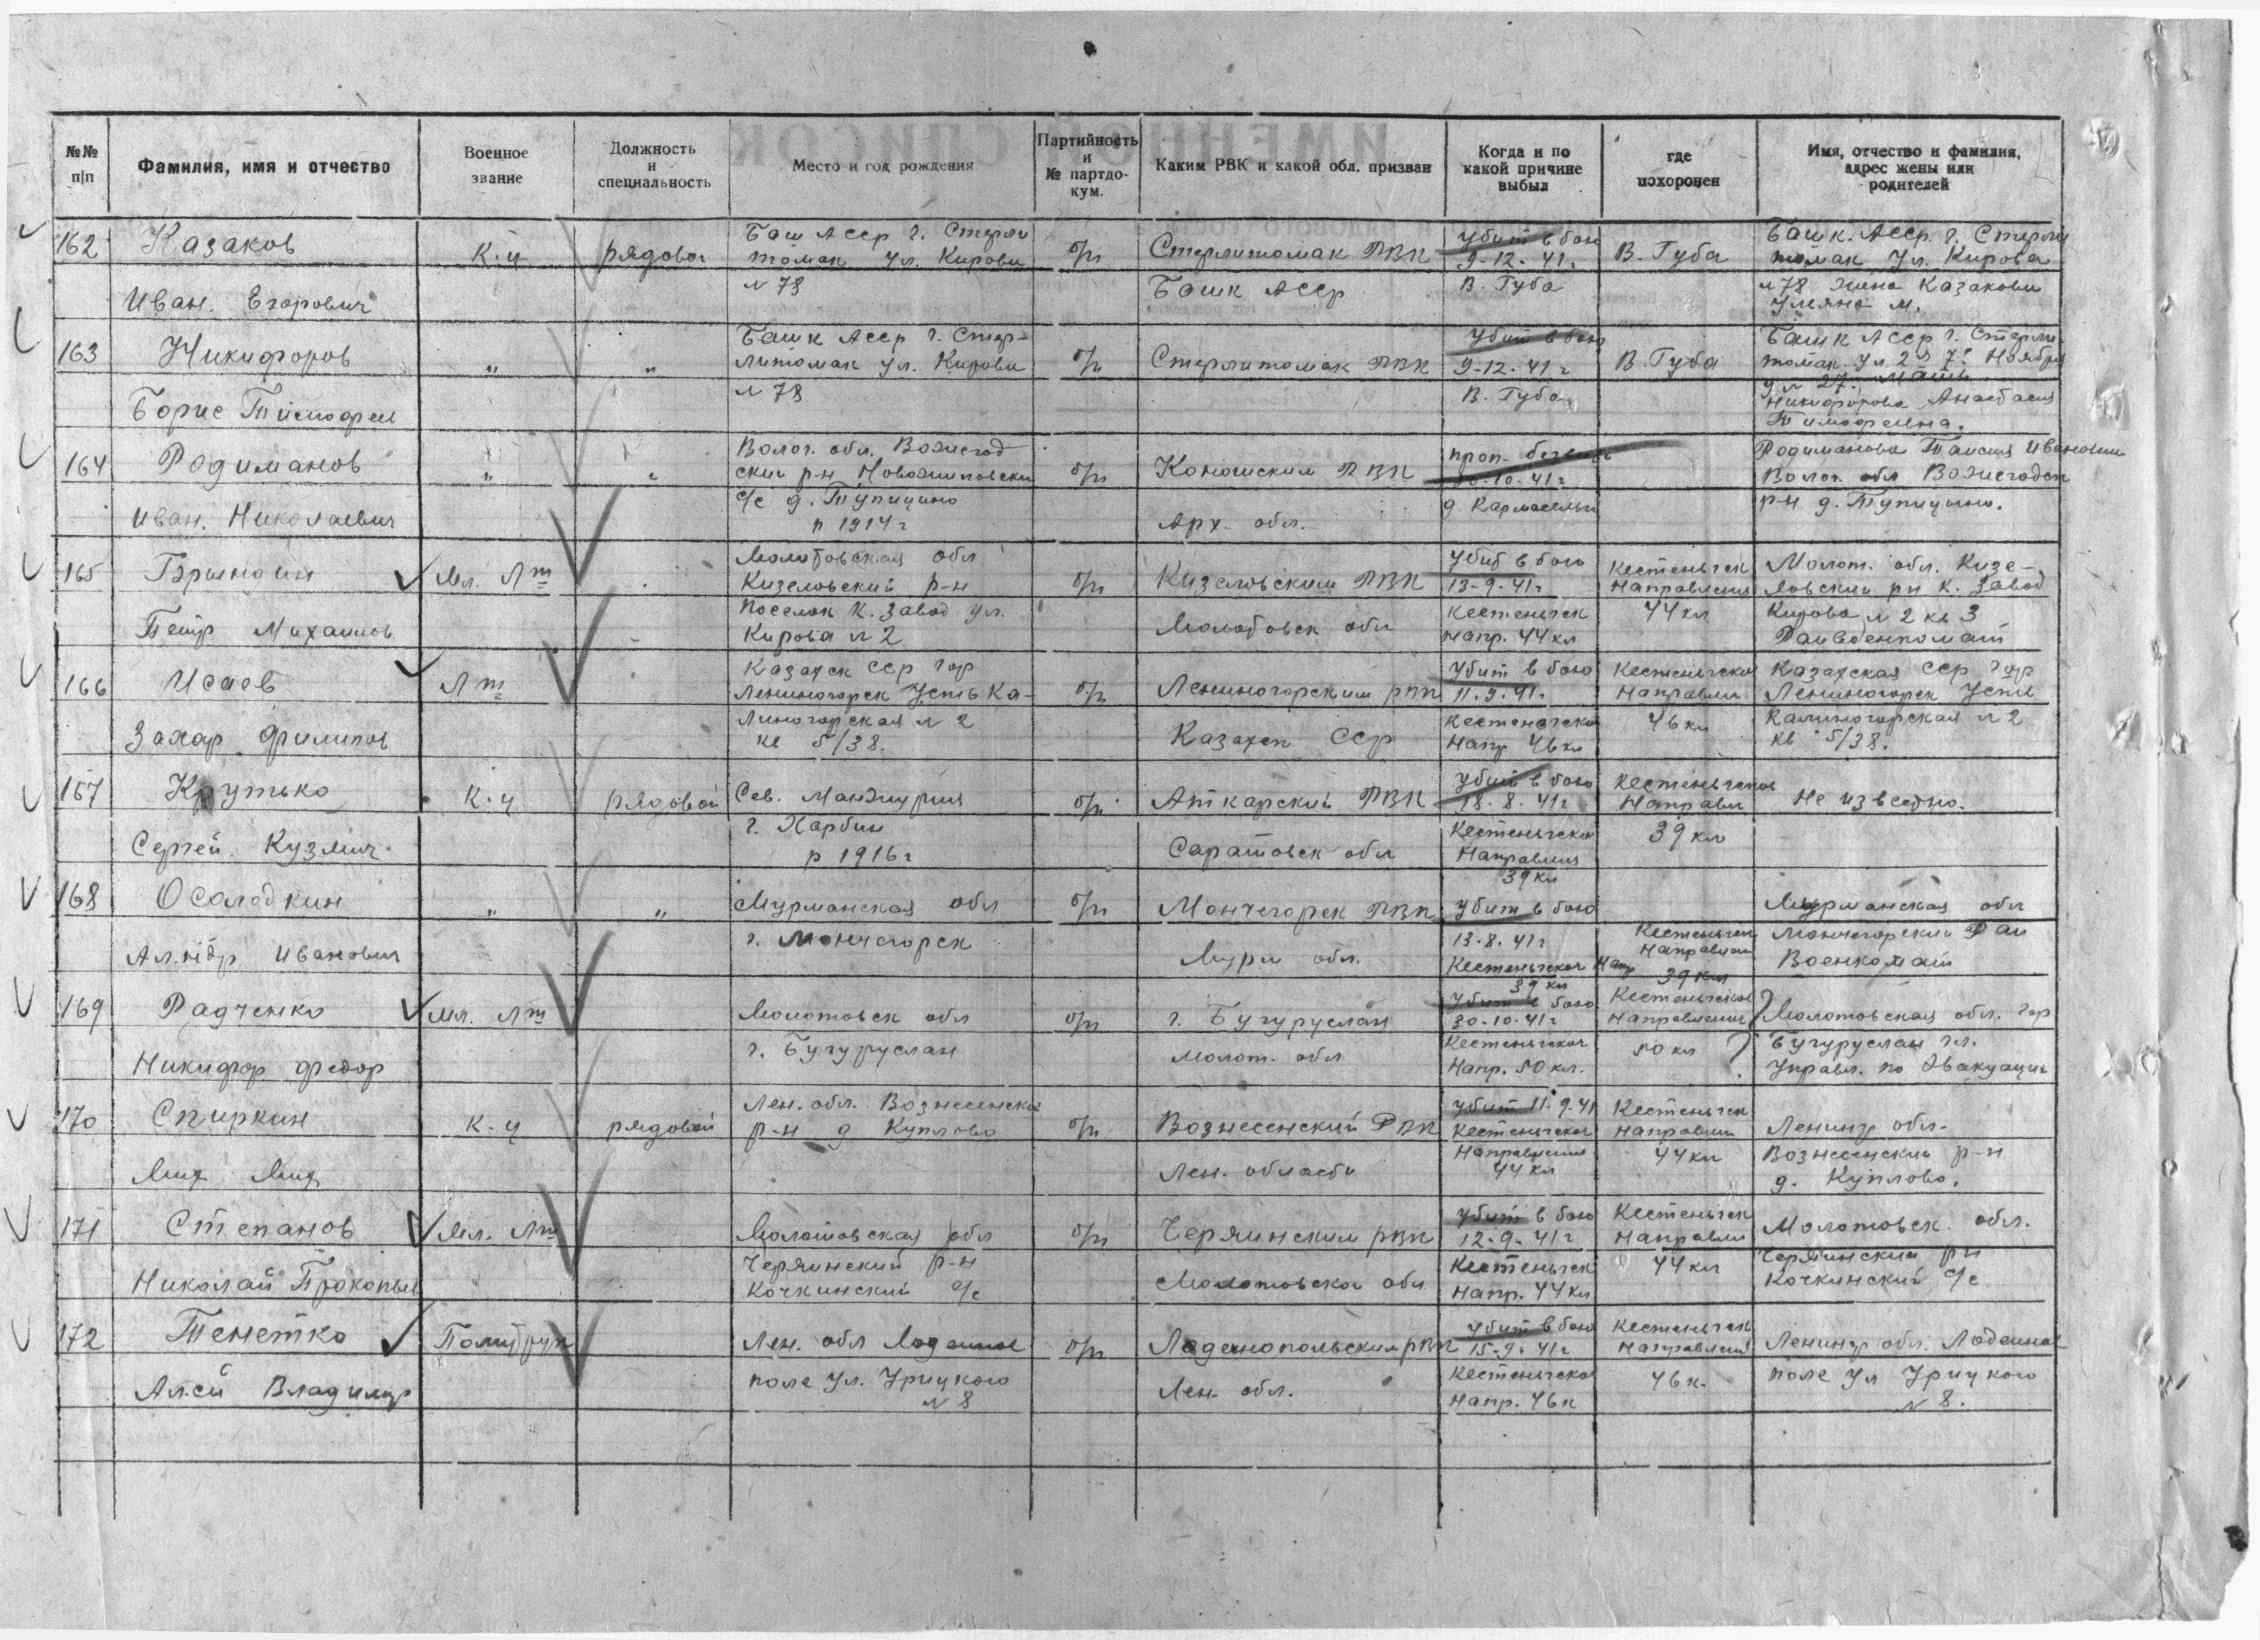 №№ п|п
Фамилия, имя и отчество
Военное звание
Должность и специальность
Место и год рождения
Партийность и № партдо-кум.
Каким РВК и какой обл. призван
Когда и по какой причине выбыл
где похоронен
Имя, отчество и фамилия, адрес жены или родителей
162 Казаков К-ц рядовой Баш АССР г. Стерли б/п Стерлитомак РВК Убит в бою В. Губа Башк. АССР г. Стерли
томак ул. Кирова 9-12-41г. томак ул. Кирова
Иван. Егорович № 78 Башк АССР В. Губа № 78 жена Казакова
Ульяна М.
163 Никифоров " " Башк АССР г. Стер- б/п Стерлитомак РВК Убит в бою В. Губа Башк АССР г. Стерли-
литомак ул. Кирова 9-12-41г томак ул 7 Ноября
Борис Тимофеев № 78 В. Губа д № 27. мать
Никифорова Анастасия
Тимофеевна.
164 Родиманов " " Волог. обл. Вожегод б/п Коношским РВК проп. без вести Родиманова Таисия Ивановна
ский р-н 10-41г Волог. обл Вожегодск
Иван. Николаевич с/с д. Тупицыно Арх. обл. д р-н д. Тупицыно.
р 1914г
165 Мл. Лт Молотовская обл б/п Кизеловским РВК Убит в бою Кестеньгск Молот. обл. Кизе-
Кизеловский р-н 13-9-41г Направления ловский рн К. Завод
Петр Михайлов Поселок К. Завод ул. Молотовск обл Кестеньгск 44 кл Кирова № 2 кв 3
Кирова № 2 Напр. 44 кл Райвоенкомат
166 Исаев Лт Казахск ССР гор б/п Лениногорским рвк Убит в бою Кестеньгско Казахская ССР гор
Лениногорск Усть Ка- 11-9-41г. Направлен Лениногорск Усть
Захар Филипов линогорская № 2 Казахск ССР Кестеньгско 46 кл Калиногорская № 2
кв 5/38. Напр 46 кл кв 5/38.
167 Крутько К-ц рядовой Сев. Манджурия б/п Аткарский РВК Убит в бою Кестеньгское Не известно.
18-8-41г Направл
Сергей. Кузмич. г. Харбин Саратовск обл Кестеньгско 39 кл
р 1916г Направления
39 кл
168 Осолодкин " " Мурманская обл б/п Мончегорск РВК Убит в бою Мурманская обл
Ал-ндр Иванович г. Мончегорск Мурм обл. 13-8-41г Кестеньгск Мончегорский Рай
Кестеньгское Напр Направлен Военкомат
39 кл 39 кл
169 Радченко Мл. Лт Молотовск обл б/п г. Бугуруслан Убит в бою Кестеньгское Молотовская обл. гор
30-10-41г Направления
Никифор Федор г. Бугуруслан Молот. обл Кестеньгское 50 кл ? Бугуруслан гл.
Напр. 50 кл. Управл. по Эвакуации
170 Спиркин К-ц рядовой Лен. обл. Вознесенск б/п Вознесенский РВК Убит 11-9-41 Кестеньгск Ленингр обл-
р-н д Куплово Кестеньгское Направлен
Мих Мих Лен. области Направления 44 кл Вознесенский р-н
44 кл д. Куплово.
171 Степанов Мл. Лт Молотовская обл б/п Чермынским рвк Убит в бою Кестеньгск Молотовск. обл.
12-9-41г Направлен
Николай Прокопьев Чермынский р-н Молотовской обл Кестеньгск 44 кл Чермынский рн
Кочкинский с/с Напр. 44 кл Кочкинский с/с
172 Тенетко Политрук Лен. обл Лодейное б/п Лодейнопольским рвк Убит в бою Кестеньгск Ленингр обл. Лодейное
15-9-41г Направлен
Ал-сей Владимир поле ул. Урицкого Лен обл. Кестеньгско 46 к. поле ул Урицкого
№ 8 Напр. 46 к № 8.